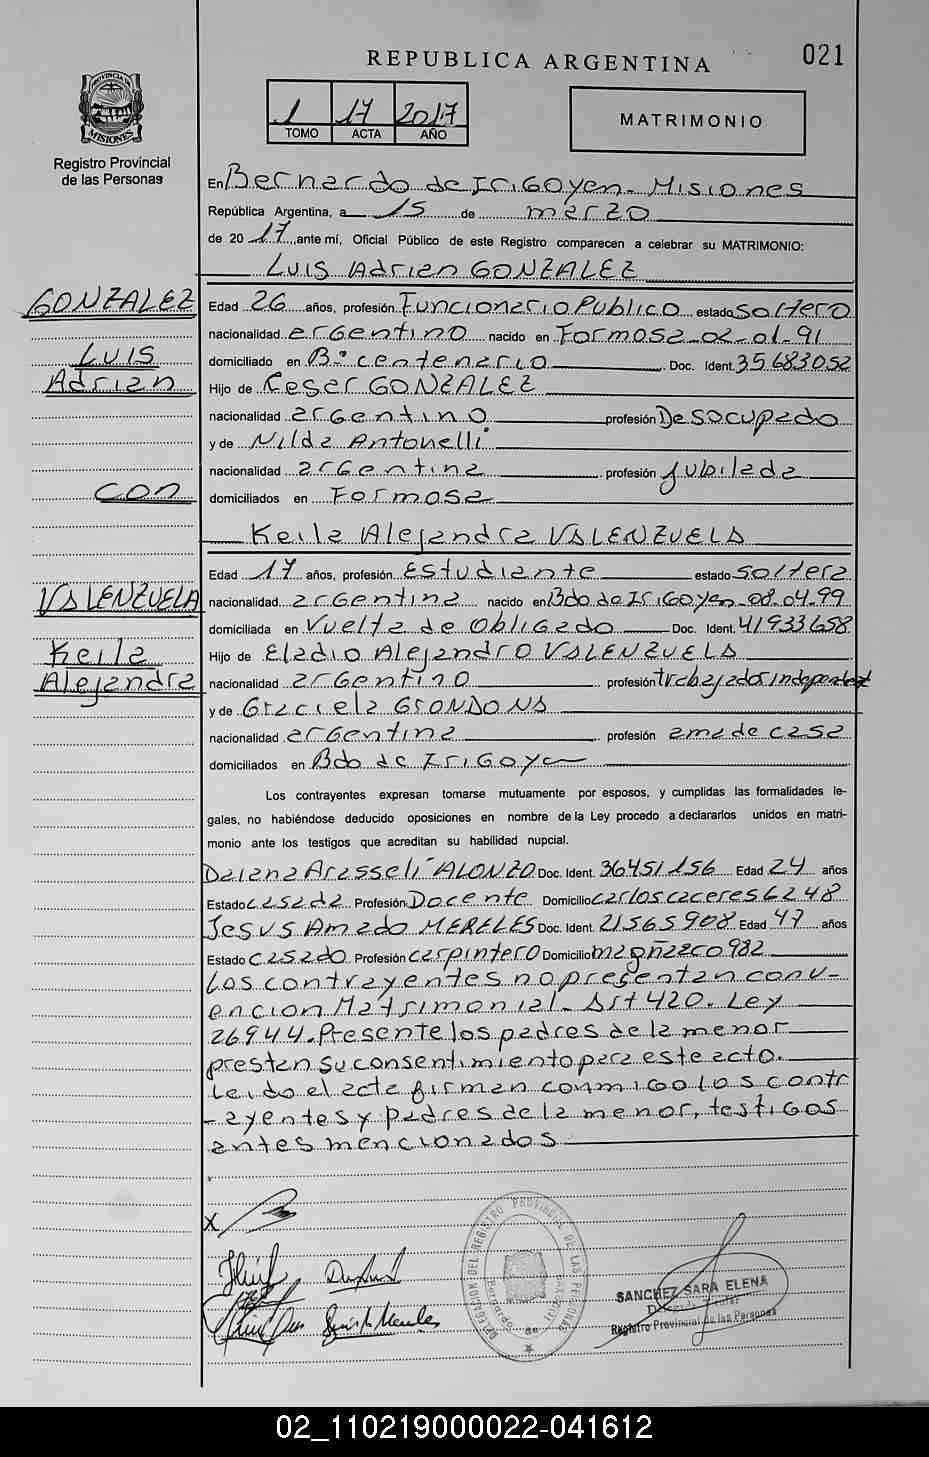 REPUBLICA ARGENTINA
021
1 17 2017
TOMO ACTA AÑO
MATRIMONIO
PROVINCIA DE
MISIONES
Registro Provincial
de las Personas
En Bernardo de IriGoyen - Misiones
República Argentina, a 15 de marzo
de 20 17, ante mí, Oficial Público de este Registro comparecen a celebrar su MATRIMONIO:
Luis Adrian GONZALEZ
GONZALEZ
Luis
Adrian
con
VALENZUELA
Keila
Alejandra
Edad 26 años, profesión Funcionario Publico estado soltero
nacionalidad argentino nacido en Formosa - 02-01-91
domiciliado en Bº centenario Doc. Ident. 35683052
Hijo de Ceser GONZALEZ
nacionalidad argentino profesión Desocupado
y de Nilda Antonelli
nacionalidad argentina profesión jubilada
domiciliados en Formosa
Keila Alejandra VALENZUELA
Edad 17 años, profesión Estudiante estado soltera
nacionalidad argentina nacido en Bdo de IriGoyen - 08-04-99
domiciliada en Vuelta de Obligado Doc. Ident. 41933658
Hijo de Eladio Alejandro VALENZUELA
nacionalidad argentino profesión trabajador independent
y de Graciela GRONDONA
nacionalidad argentina profesión ama de casa
domiciliados en Bdo de IriGoyen
Los contrayentes expresan tomarse mutuamente por esposos, y cumplidas las formalidades le-
gales, no habiéndose deducido oposiciones en nombre de la Ley procedo a declararlos unidos en matri-
monio ante los testigos que acreditan su habilidad nupcial.
Daiana Arasseli ALONZO Doc. Ident. 36451156 Edad 24 años
Estado casada Profesión Docente Domicilio carlos caceres 6248
Jesus Amado MERELES Doc. Ident. 21565908 Edad 47 años
Estado casado Profesión carpintero Domicilio magñasco 982
Los contrayentes no presentan conv-
encion Matrimonial - Art 420. Ley
26944. Presente los padres de la menor
prestan su consentimiento para este acto.
Leido el acta firman conmigo los contr
-ayentes y padres de la menor, testigos
antes mencionados
X
DELEGACION DEL REGISTRO PROVINCIAL DE LAS PERSONAS
SANCHEZ SARA ELENA
Registro Provincial de las Personas
02_110219000022-041612